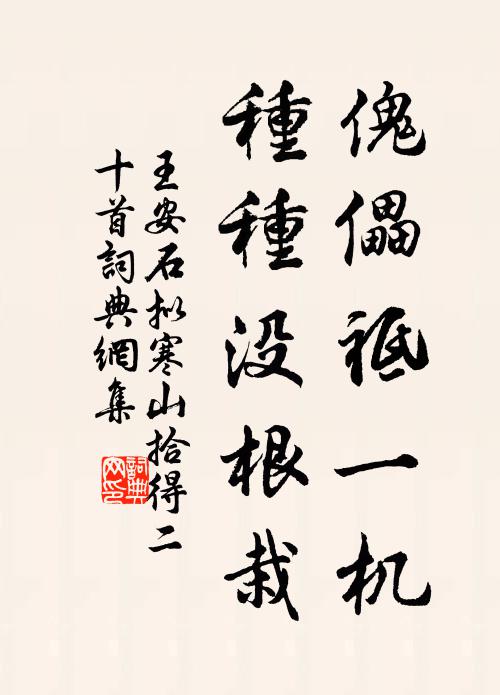 傀儡祗一机
種種没根栽
王安石拟寒山拾得二
十首詞典網集
詞典網印